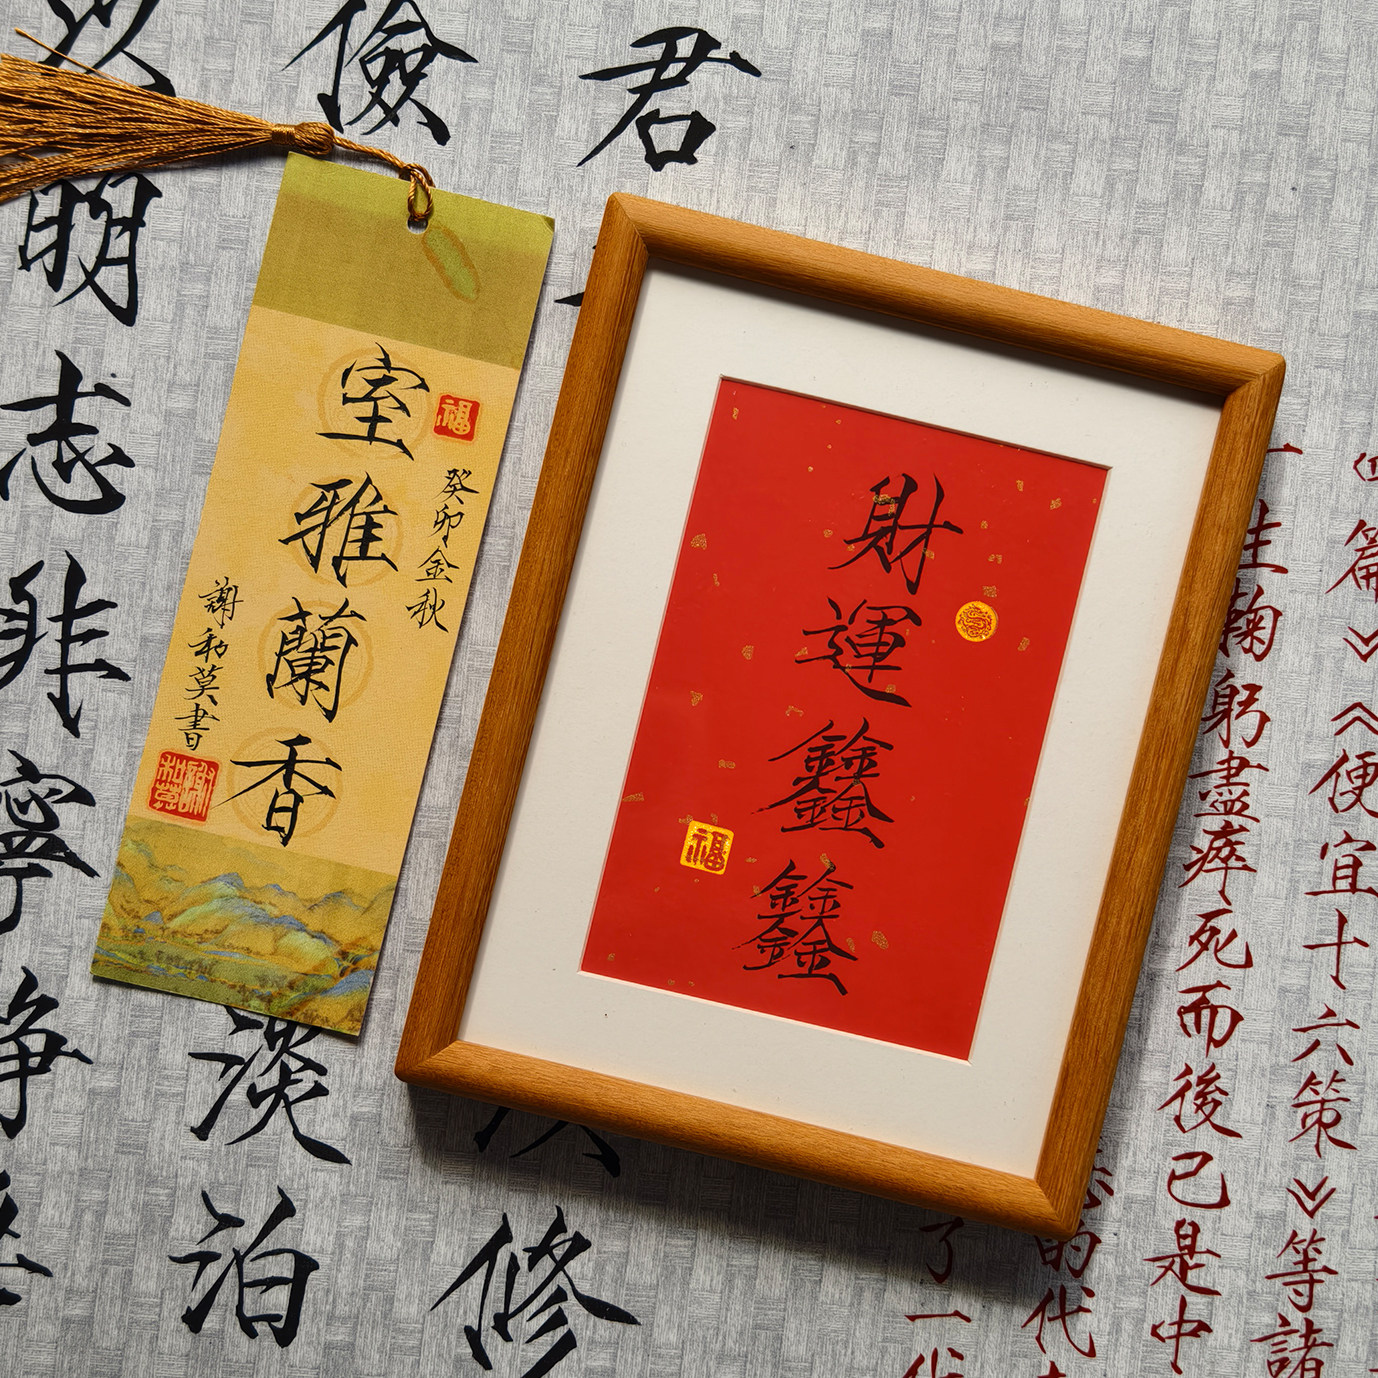 財運𨰻𨰻
福
室雅蘭香
福
癸卯金秋
謝和莫書
君
修
儉
淡泊
明志非寧靜
篇》《便宜十六策》等諸
一生鞠躬盡瘁死而後已是中
的代
了一代